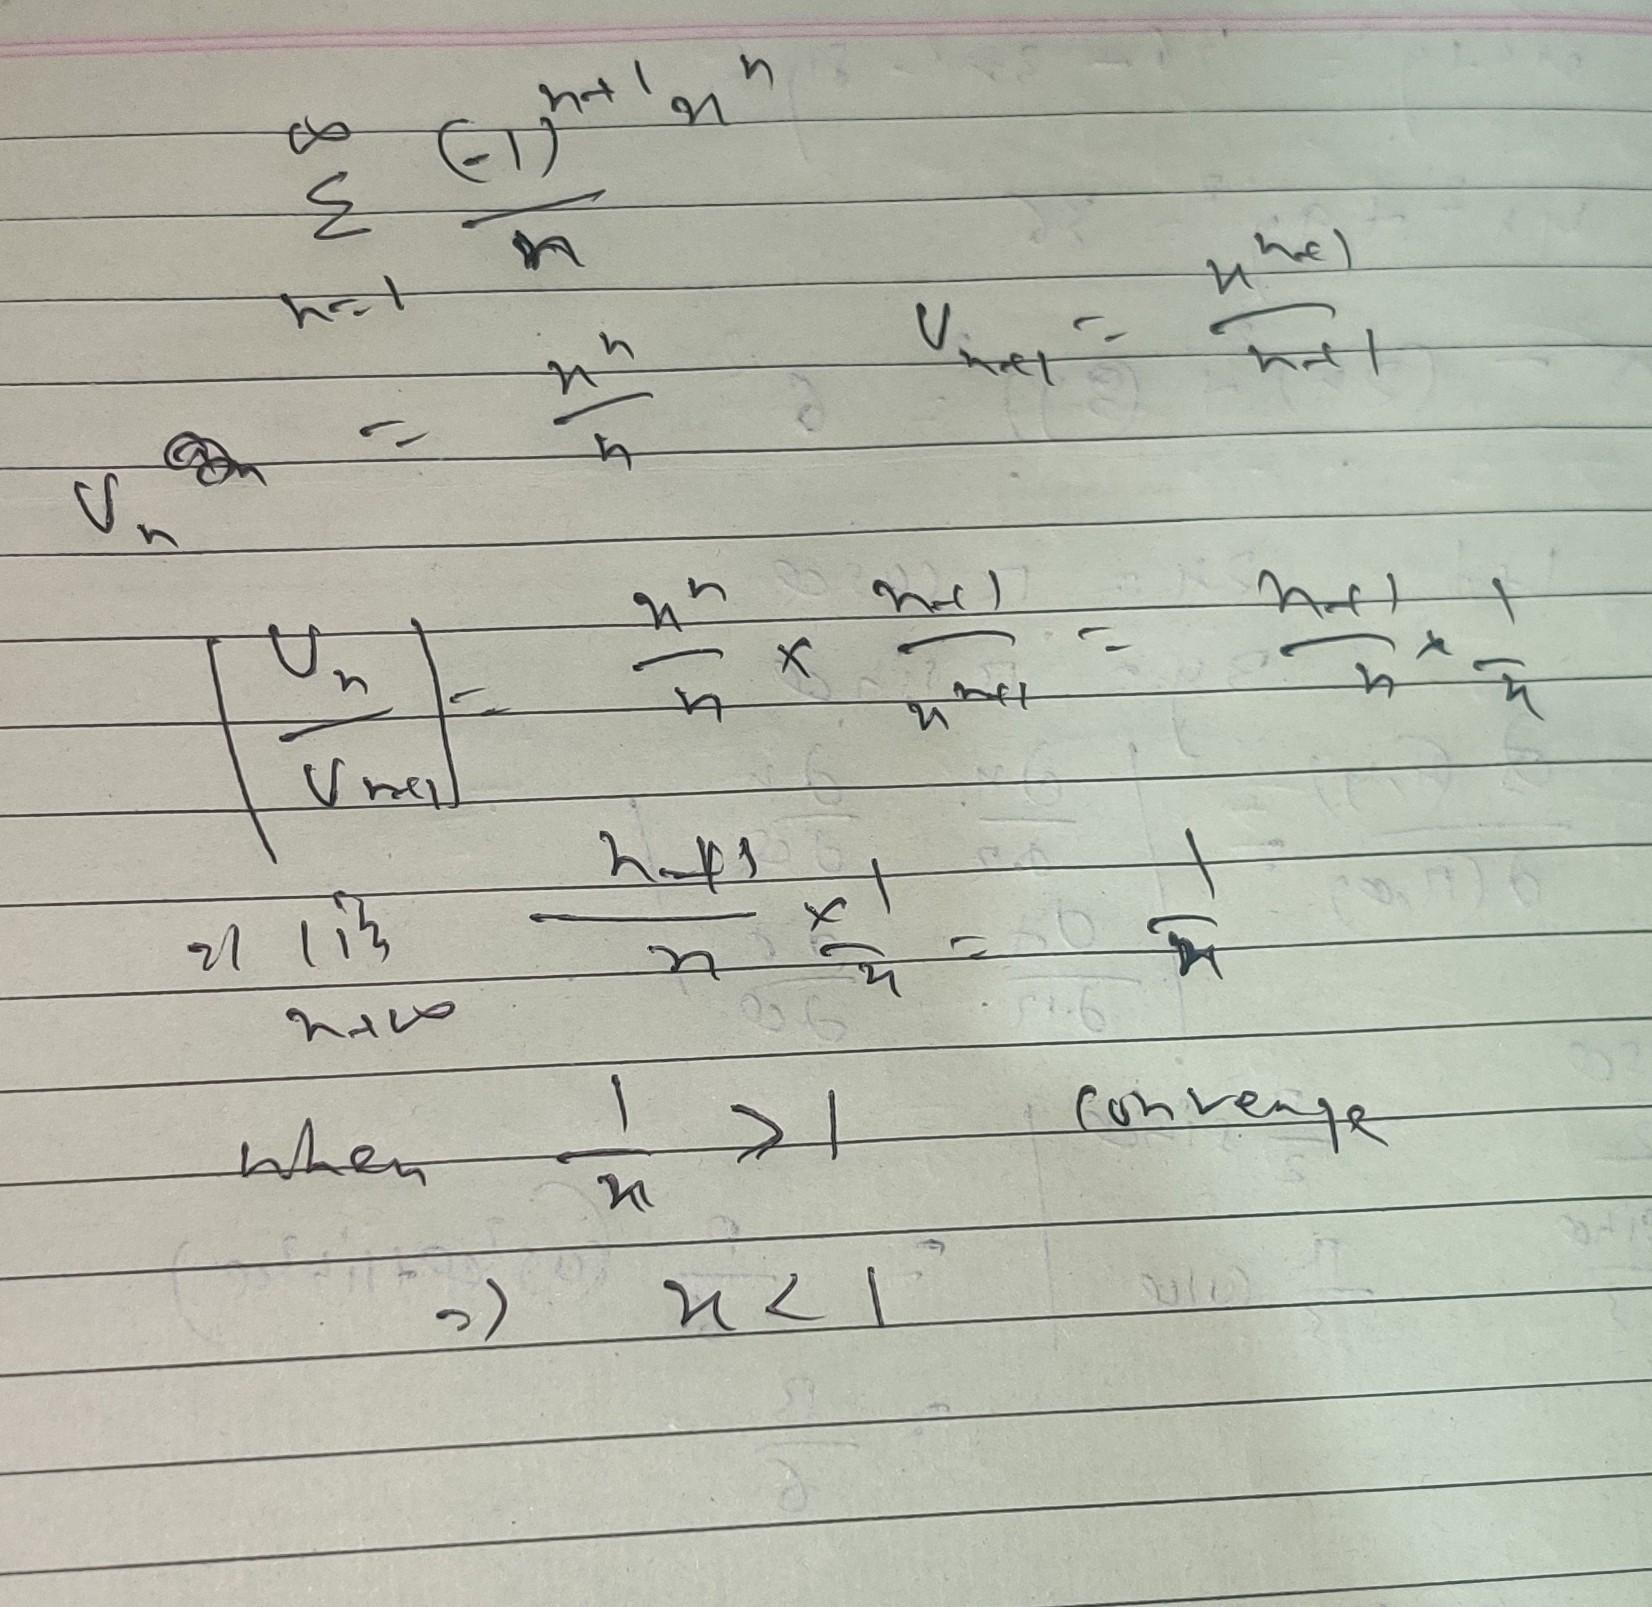 ∞ (-1)^{n+1} x^n
Σ ―――
n=1 n
U_n = x^n / n U_{n+1} = x^{n+1} / n+1
|U_n / U_{n+1}| = x^n / n × n+1 / x^{n+1} = n+1 / n × 1 / x
⇒ lim n→∞ n+1 / n × 1 / x = 1 / x
when 1 / x > 1 converge
⇒ x < 1